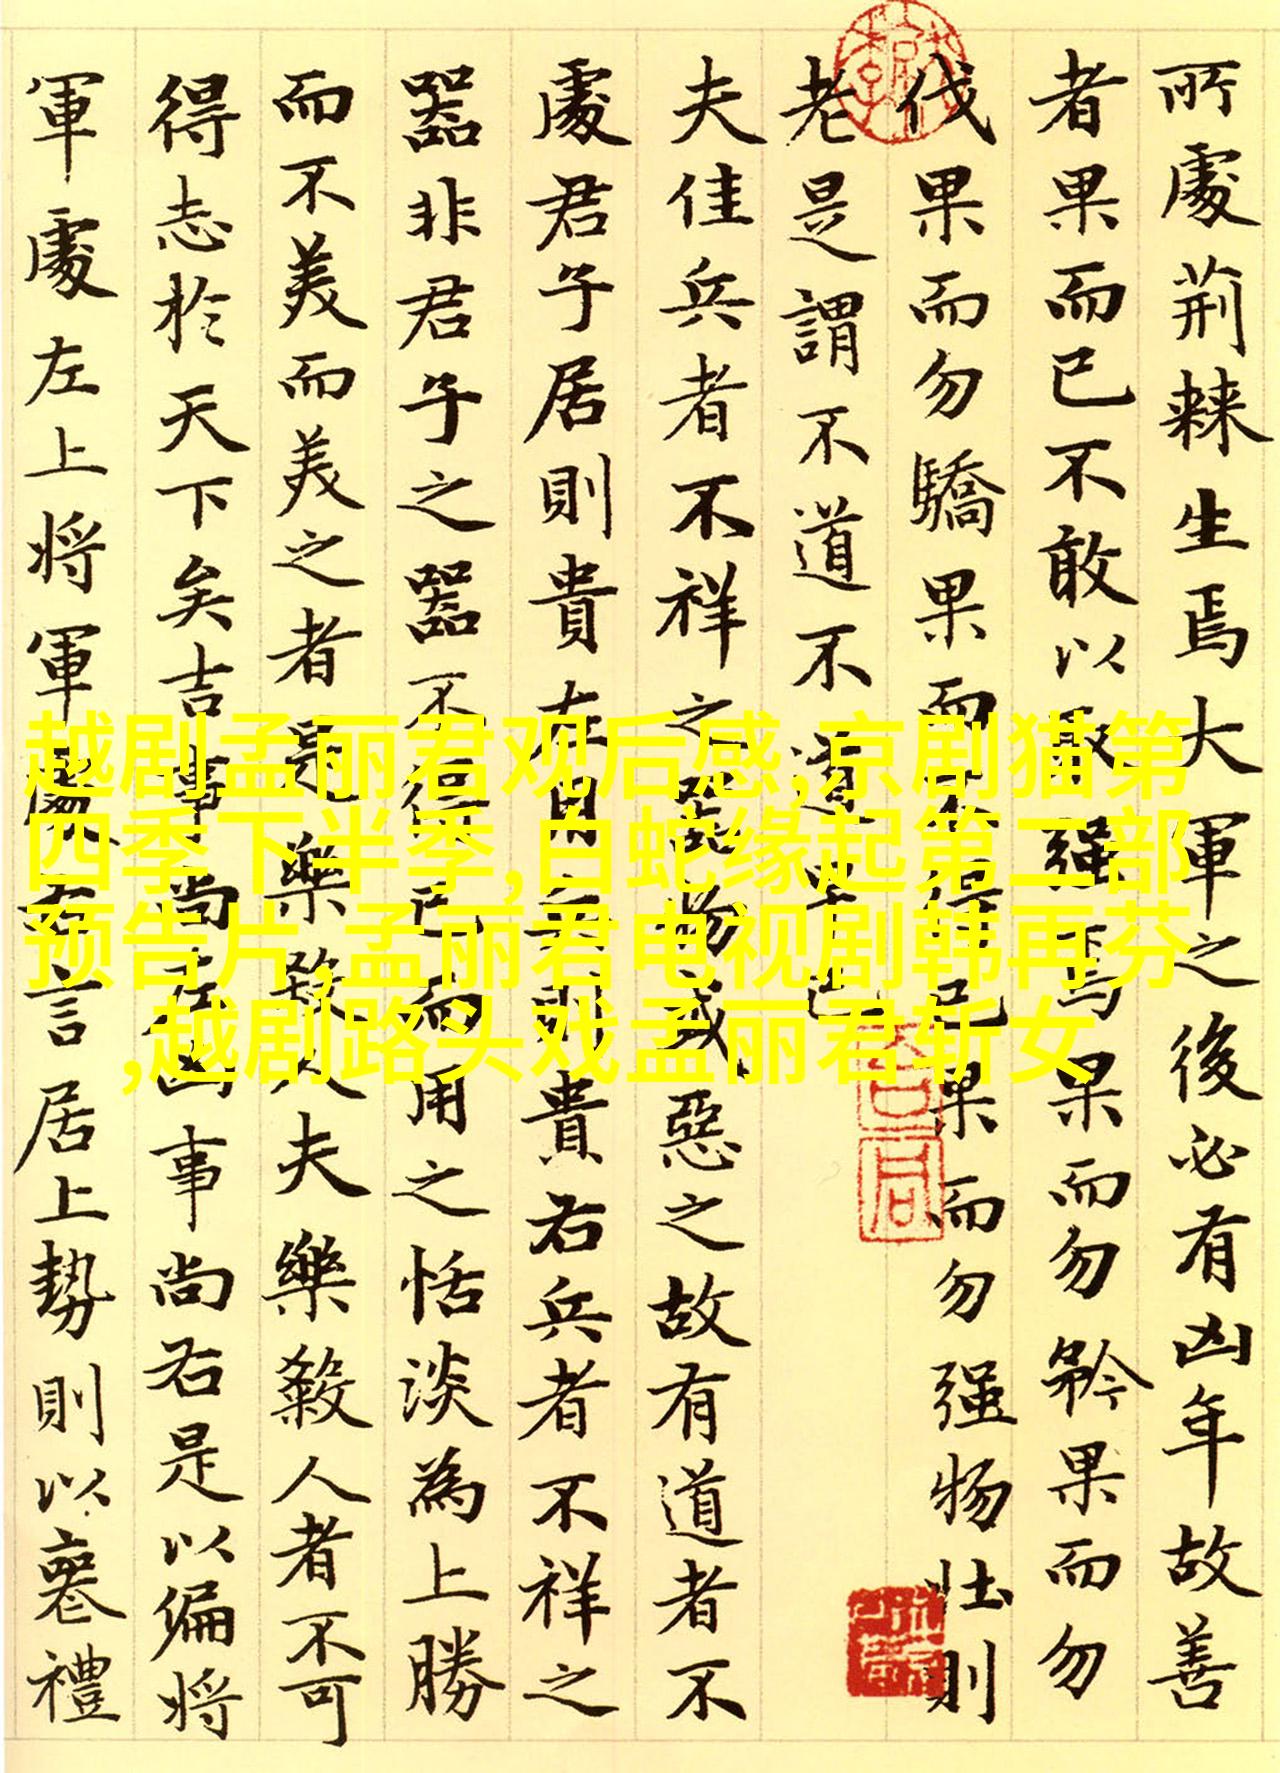 所處荊棘生焉大軍之後必有凶年故善
者果而已不敢以取强焉果而勿矜果而勿
伐果而勿驕果而不得已果而勿强物壮則
老是謂不道不道早已
夫佳兵者不祥之器物或惡之故有道者不
處君子居則貴左用兵則貴右兵者不祥之
器非君子之器不得已而用之恬淡為上勝
而不美而美之者是樂殺人夫樂殺人者不可
得志於天下矣吉事尚左凶事尚右是以偏將
軍處左上將軍處右言居上勢則以喪禮
越剧孟丽君观后感,京剧猫第
四季下半季,白蛇缘起第二部
预告片,孟丽君电视剧韩再芬
,越剧路头戏孟丽君斩女